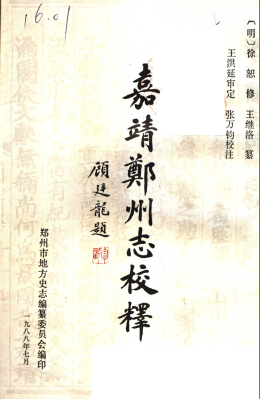 16.01
〔明〕徐恕 修 王继洛 纂
王洪延审定 张万钧校注
嘉靖鄭州志校釋
顾廷龍题
郑州市地方史志编纂委员会编印
一九八八年七月